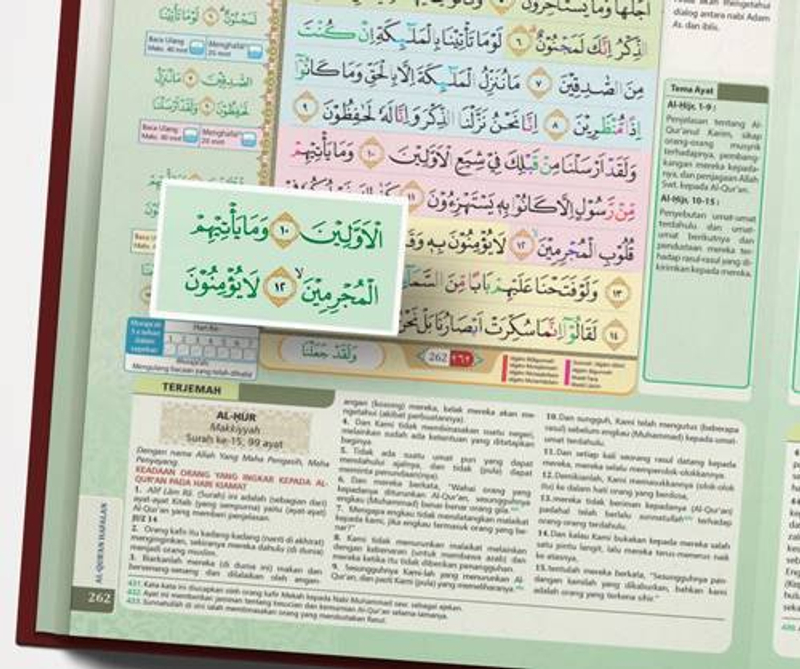 اَجَلَهَا وَمَا يَسْتَأْخِرُوْنَ
الذِّكْرُ اِنَّكَ لَمَجْنُوْنٌ ۗ ٦ لَوْمَا تَأْتِيْنَا بِالْمَلٰۤىِٕكَةِ اِنْ كُنْتَ
مِنَ الصّٰدِقِيْنَ ٧ مَا نُنَزِّلُ الْمَلٰۤىِٕكَةَ اِلَّا بِالْحَقِّ وَمَا كَانُوْٓا
اِذًا مُّنْظَرِيْنَ ٨ اِنَّا نَحْنُ نَزَّلْنَا الذِّكْرَ وَاِنَّا لَهٗ لَحٰفِظُوْنَ ٩
وَلَقَدْ اَرْسَلْنَا مِنْ قَبْلِكَ فِيْ شِيَعِ الْاَوَّلِيْنَ ١٠ وَمَا يَأْتِيْهِمْ
مِّنْ رَّسُوْلٍ اِلَّا كَانُوْا بِهٖ يَسْتَهْزِءُوْنَ ١١
قُلُوْبِ الْمُجْرِمِيْنَ ۙ ١٢ لَا يُؤْمِنُوْنَ بِهٖ
١٣ وَلَوْ فَتَحْنَا عَلَيْهِمْ بَابًا مِّنَ السَّمَاۤءِ
١٤ لَقَالُوْٓا اِنَّمَا سُكِّرَتْ اَبْصَارُنَا بَلْ نَحْنُ
الْاَوَّلِيْنَ ١٠ وَمَا يَأْتِيْهِمْ
الْمُجْرِمِيْنَ ۙ ١٢ لَا يُؤْمِنُوْنَ
وَلَقَدْ جَعَلْنَا
262 ٢٦٢
dialog antara nabi Adam
As. dan iblis.
Tema Ayat
Al-Hijr, 1-9 :
Penjelasan tentang Al-
Qur'anul Karim, sikap
orang-orang musyrik
terhadapnya, pembang-
kangan mereka kepada-
nya, dan penjagaan Allah
Swt. kepada Al-Qur'an.
Al-Hijr, 10-15 :
Penyebutan umat-umat
terdahulu dan umat-
umat berikutnya dan
pendustaan mereka ter-
hadap rasul-rasul yang di-
kirimkan kepada mereka.
Baca Ulang
Maks. 40 menit
Menghafal
20 menit
Baca Ulang
Maks. 40 menit
Menghafal
20 menit
Mengulang bacaan yang telah dihafal
TERJEMAH
AL-HIJR
Makkiyyah
Surah ke-15, 99 ayat
Dengan nama Allah Yang Maha Pengasih, Maha
Penyayang.
KEADAAN ORANG YANG INGKAR KEPADA AL-
QUR'AN PADA HARI KIAMAT
1. Alif Lām Rā. (Surah) ini adalah (sebagian dari)
ayat-ayat Kitab (yang sempurna) yaitu (ayat-ayat)
Al-Qur'an yang memberi penjelasan.
JUZ 14
2. Orang kafir itu kadang-kadang (nanti di akhirat)
menginginkan, sekiranya mereka dahulu (di dunia)
menjadi orang muslim.
3. Biarkanlah mereka (di dunia ini) makan dan
bersenang-senang dan dilalaikan oleh angan-
angan (kosong) mereka, kelak mereka akan me-
ngetahui (akibat perbuatannya).
4. Dan Kami tidak membinasakan suatu negeri,
melainkan sudah ada ketentuan yang ditetapkan
baginya.
5. Tidak ada suatu umat pun yang dapat
mendahului ajalnya, dan tidak (pula) dapat
meminta penundaan(nya).
6. Dan mereka berkata, "Wahai orang yang
kepadanya diturunkan Al-Qur'an, sesungguhnya
engkau (Muhammad) benar-benar orang gila.
7. Mengapa engkau tidak mendatangkan malaikat
kepada kami, jika engkau termasuk orang yang be-
nar?"
8. Kami tidak menurunkan malaikat melainkan
dengan kebenaran (untuk membawa azab) dan
mereka ketika itu tidak diberikan penangguhan.
9. Sesungguhnya Kami-lah yang menurunkan Al-
Qur'an, dan pasti Kami (pula) yang memeliharanya.
10. Dan sungguh, Kami telah mengutus (beberapa
rasul) sebelum engkau (Muhammad) kepada umat-
umat terdahulu.
11. Dan setiap kali seorang rasul datang kepada
mereka, mereka selalu memperolok-olokkannya.
12. Demikianlah, Kami memasukkannya (olok-olok
itu) ke dalam hati orang yang berdosa,
13. mereka tidak beriman kepadanya (Al-Qur'an)
padahal telah berlalu sunnatullah terhadap
orang-orang terdahulu.
14. Dan kalau Kami bukakan kepada mereka salah
satu pintu langit, lalu mereka terus-menerus naik
ke atasnya,
15. tentulah mereka berkata, "Sesungguhnya pan-
dangan kamilah yang dikaburkan, bahkan kami
adalah orang yang terkena sihir."
431. Kata-kata ini diucapkan oleh orang kafir Mekah kepada Nabi Muhammad saw. sebagai ejekan.
432. Ayat ini memberikan jaminan tentang kesucian dan kemurnian Al-Qur'an selama-lamanya.
433. Sunnatullah di sini ialah membinasakan orang yang mendustakan Rasul.
AL-QUR'AN HAFALAN
262